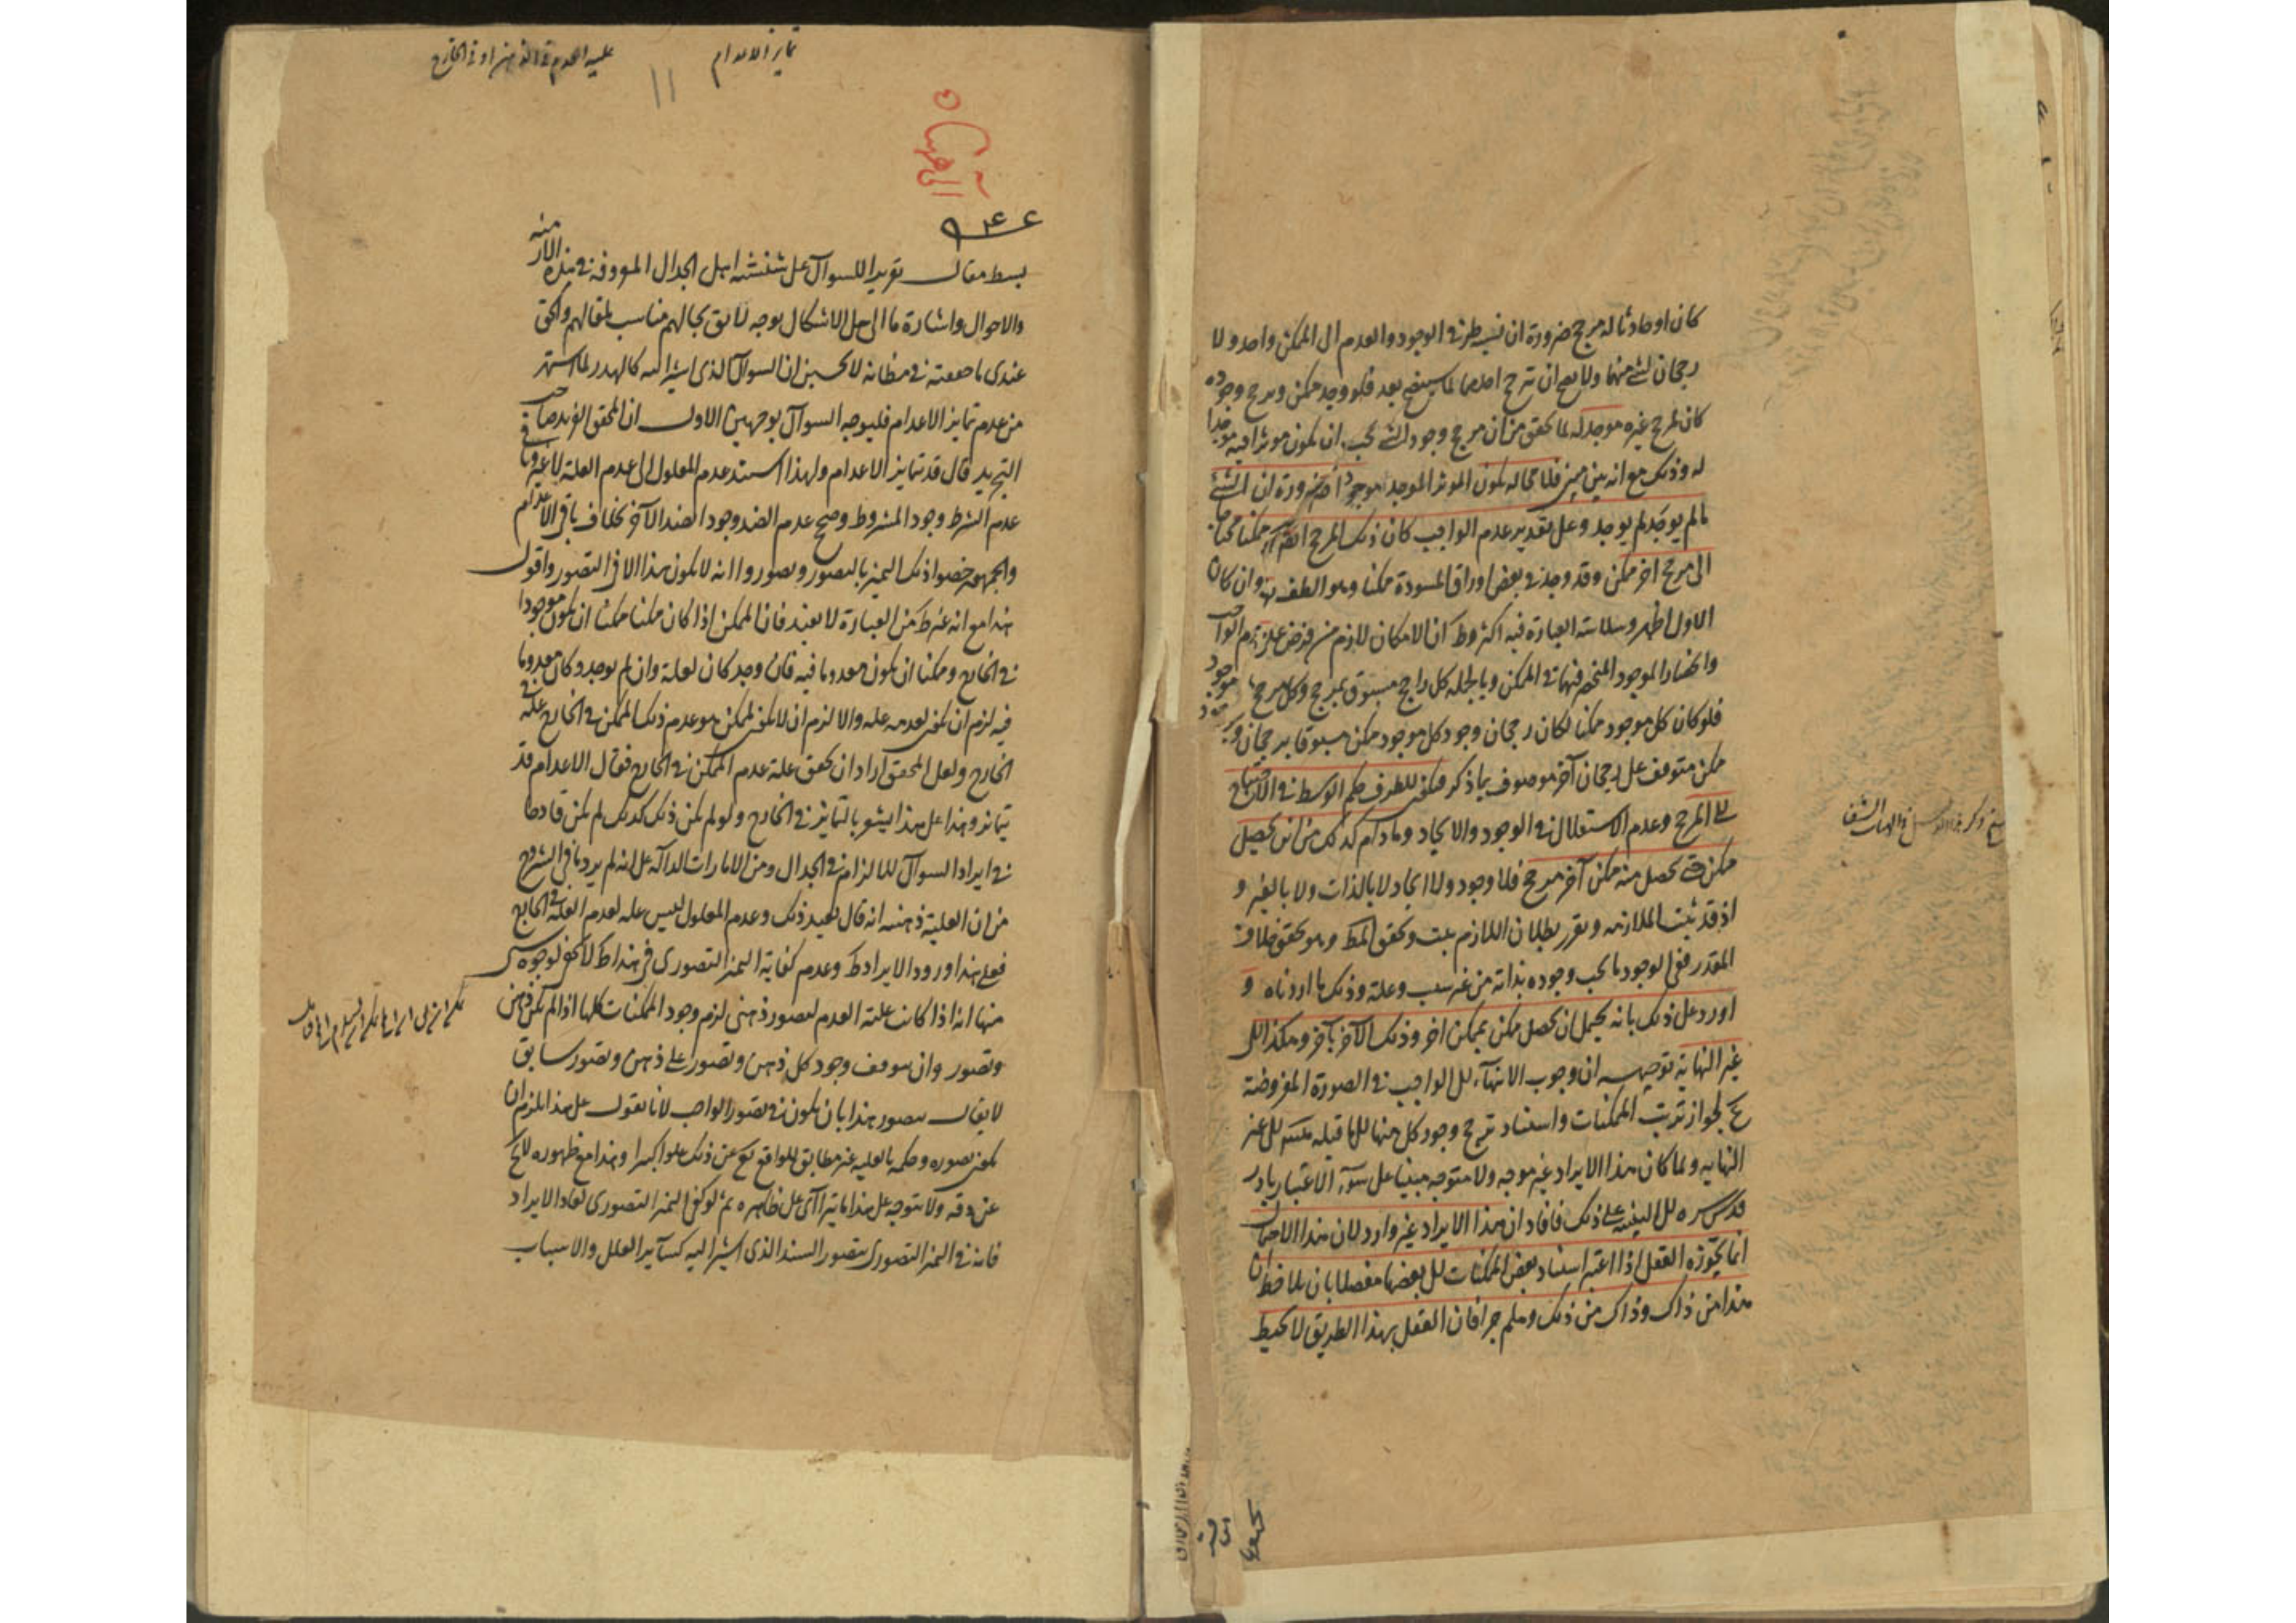 كان او حادثا له مرجح ضرورة ان نسبة طرفى الوجود والعدم الى الممكن واحد ولا
رجحان لشئ منهما ولا يصح ان يترجح احدهما لما سيتضح بعد فلو وجد ممكن وترجح وجوده
كان لمرجح غيره موجد له لما تحقق من ان مرجح وجود الشئ يجب ان يكون موثرا فيه موجدا
له وذلك مع انه بين مبين فلا محاله يكون الموثر الموجد موجودا ضرورة ان الشئ
ما لم يوجد لم يوجد وعلى تقدير عدم الواجب كان ذلك المرجح ايضا ممكنا محتاجا
الى مرجح اخر ممكن وقد وجد فى بعض اوراق المسودة ممكنا وهو الطف وان كان
الاول اظهر وسلاسة العبارة فيه اكثر وظ ان الامكان لازم من فرض عدم الواجب
وانحصار الموجود فى الممكن وبالجمله كل راجح مسبوق بمرجح وكل مرجح موجود
فلو كان كل موجود ممكنا لكان رجحان وجود كل موجود ممكن مسبوقا برجحان وجود
ممكن متوقف على رجحان آخر موصوف بما ذكر فيكون للطرف حكم الوسط فى الاحتياج
الى المرجح وعدم الاستقلال فى الوجود والايجاد وما دام كذلك من اين يحصل
ممكن حتى يحصل منه ممكن آخر مرجح فلا وجود ولا ايجاد لا بالذات ولا بالغير و
اذ قد ثبت الملازمه وتقرر بطلان اللازم ثبت وتحقق المط وهو تحقق خلاف
المقدر ففى الوجود ما يجب وجوده بذاته من غير سبب وعلة وذلك ما اردناه و
اورد على ذلك بانه يحتمل ان يحصل ممكن بممكن اخر وذلك الآخر بآخر وهكذا الى
غير النهاية توجيهه ان وجوب الانتهاء الى الواجب فى الصورة المفروضة
مم لجواز ترتب الممكنات واستناد ترجح وجود كل منها الى ما قبله الى غير
النهايه ولما كان هذا الايراد غير موجه ولا متوجه مبنيا على سوء الاعتبار بادر
قدس سره الى التنبيه على ذلك فافاد ان هذا الايراد غير وارد لان هذا الاحتمال
انما يجوزه العقل اذا اعتبر استناد بعض الممكنات الى بعضها مفصلا بان يلاحظ ان
هذا من ذاك وذاك من ذلك وهلم جرا فان العقل بهذا الطريق لا يحيط
تمايز الاعدام
علية العدم فى الذهن او فى الخارج
١١
بسط مقال تقرير السوال على شنشنة اهل الجدال المعروفة فى هذه
والاحوال واشارة ما الى حل الاشكال بوجه لائق بحالهم مناسب لمقالهم والحق
عندى ما حققته فى مظانه لا تحسبن ان السوال الذى اشير اليه كالهدر لما اشتهر
من عدم تمايز الاعدام فليوجه السوال بوجهين الاول ان المحقق صاحب
التجريد قال قد تتمايز الاعدام ولهذا استند عدم المعلول الى عدم العلة لا غير ونافى
عدم الشرط وجود المشروط وصحح عدم الضد وجود الضد الآخر بخلاف باقى الاعدام
والجمهور خصوا ذلك التميز بالتصور وتصوروا انه لا يكون هذا الا فى التصور واقول
هذا مع انه غير ظ من العبارة لا يفيد فان الممكن اذا كان ممكنا ممكنا ان يكون موجودا
فى الخارج وممكنا ان يكون معدوما فيه فان وجد كان لعلة وان لم يوجد وكان معدوما
فيه لزم ان يكون لعدمه علة والا لزم ان لا يكون لممكن هو عدم ذلك الممكن فى الخارج علة فى
الخارج ولعل المحقق اراد ان يحقق علة عدم الممكن فى الخارج فقال الاعدام قد
تتمايز وهذا على هذا يشعر بالتمايز فى الخارج ولو لم يكن ذلك كذلك لم يكن قادحا
فى ايراد السوال للالزام فى الجدال ومن الامارات الدالة على انه لم يرد ما فى الشروح
من ان العلية ذهنية انه قال بعيد ذلك وعدم المعلول ليس علة لعدم العلة فى الخارج
فعلى هذا ورود الايراد ظ وعدم كفاية التميز التصورى فى هذا ظ لا يخفى لوجوه
منها انه اذا كانت علية العدم لتصور ذهنى لزم وجود الممكنات كلها اذا لم يكن ذهن
وتصور وان يتوقف وجود كل ذهن وتصور على ذهن وتصور سابق
لا يقال يتصور هذا بان يكون فى تصور الواجب لانا نقول على هذا يلزم ان
يكون تصوره وحكمه بالعليه غير مطابق للواقع تع عن ذلك علوا كبيرا وهذا مع ظهوره لا يخ
عن دقه ولا يتوجه على هذا ما يتراآى على ظاهره ثم لو كفى التميز التصورى لعاد الايراد
فانه فى التميز التصورى يتصور السند الذى اشير اليه كسائر العلل والاسباب